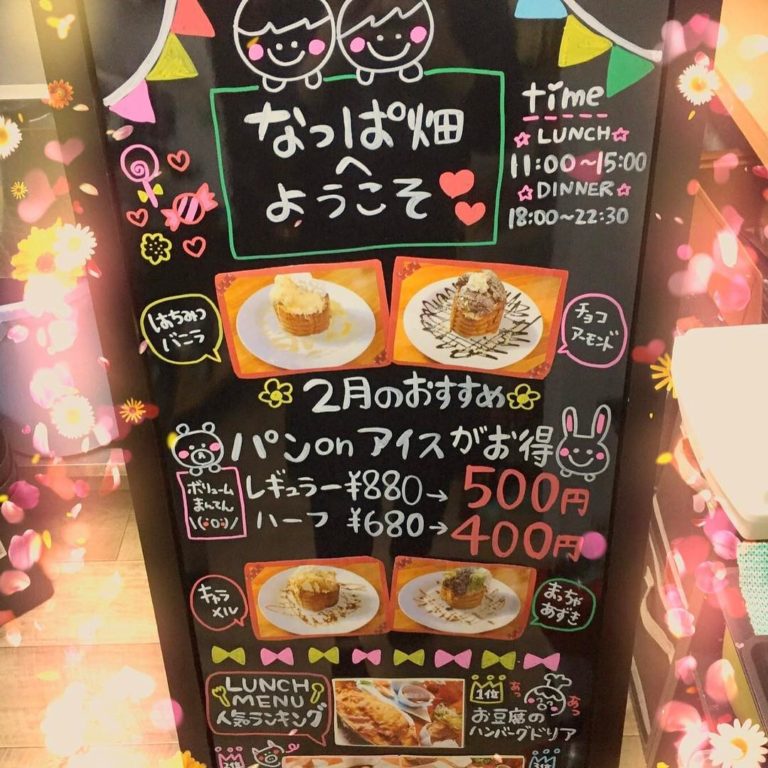 なっぱ畑
へ
ようこそ
time
LUNCH
11:00~15:00
DINNER
18:00~22:30
はちみつ
バニラ
チョコ
アーモンド
2月のおすすめ
パンonアイスがお得
ボリューム
まんてん
レギュラー¥880→500円
ハーフ ¥680→400円
キャラ
メル
まっちゃ
あずき
LUNCH
MENU
人気ランキング
1位
あっ
あっ
お豆腐の
ハンバーグドリア
2位
3位